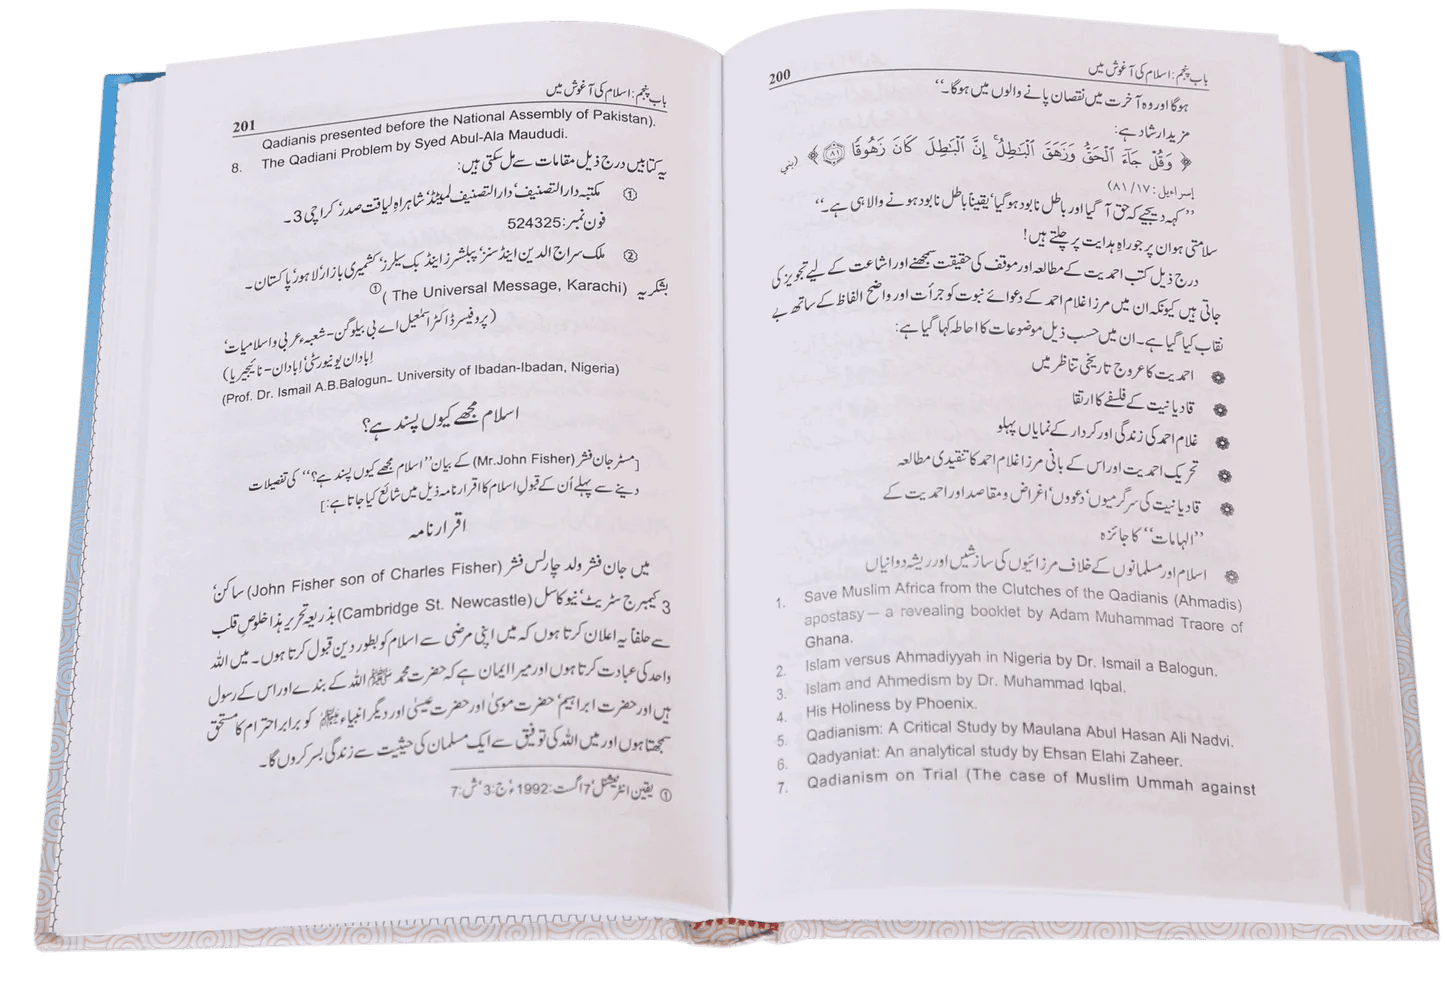 باب پنجم: اسلام کی آغوش میں
200
ہوگا اور وہ آخرت میں نقصان پانے والوں میں ہوگا۔‘‘
مزید ارشاد ہے:
﴿ وَقُلْ جَآءَ ٱلْحَقُّ وَزَهَقَ ٱلْبَـٰطِلُ إِنَّ ٱلْبَـٰطِلَ كَانَ زَهُوقًا ﴿٨١﴾ ﴾ (بني
إسراءيل: ٨١/١٧)
’’کہہ دیجیے کہ حق آ گیا اور باطل نابود ہو گیا‘ یقیناً باطل نابود ہونے والا ہی ہے۔‘‘
سلامتی ہو ان پر جو راہِ ہدایت پر چلتے ہیں!
درج ذیل کتب احمدیت کے مطالعہ اور موقف کی حقیقت سمجھنے اور اشاعت کے لیے تجویز کی
جاتی ہیں کیونکہ ان میں مرزا غلام احمد کے دعوائے نبوت کو جرأت اور واضح الفاظ کے ساتھ بے
نقاب کیا گیا ہے۔ ان میں حسب ذیل موضوعات کا احاطہ کہا گیا ہے:
احمدیت کا عروج تاریخی تناظر میں
قادیانیت کے فلسفے کا ارتقا
غلام احمد کی زندگی اور کردار کے نمایاں پہلو
تحریک احمدیت اور اس کے بانی مرزا غلام احمد کا تنقیدی مطالعہ
قادیانیت کی سرگرمیوں‘ دعووں‘ اغراض و مقاصد اور احمدیت کے
’’الہامات‘‘ کا جائزہ
اسلام اور مسلمانوں کے خلاف مرزائیوں کی سازشیں اور ریشہ دوانیاں
1. Save Muslim Africa from the Clutches of the Qadianis (Ahmadis)
apostasy— a revealing booklet by Adam Muhammad Traore of
Ghana.
2. Islam versus Ahmadiyyah in Nigeria by Dr. Ismail a Balogun.
3. Islam and Ahmedism by Dr. Muhammad Iqbal.
4. His Holiness by Phoenix.
5. Qadianism: A Critical Study by Maulana Abul Hasan Ali Nadvi.
6. Qadyaniat: An analytical study by Ehsan Elahi Zaheer.
7. Qadianism on Trial (The case of Muslim Ummah against
باب پنجم: اسلام کی آغوش میں
201
Qadianis presented before the National Assembly of Pakistan).
8. The Qadiani Problem by Syed Abul-Ala Maududi.
یہ کتابیں درج ذیل مقامات سے مل سکتی ہیں:
① مکتبہ دارالتصنیف‘ دارالتصنیف لمیٹڈ‘ شاہراہِ لیاقت صدر‘ کراچی 3۔
فون نمبر: 524325
② ملک سراج الدین اینڈ سنز‘ پبلشرز اینڈ بک سیلرز‘ کشمیری بازار‘ لاہور‘ پاکستان۔
بشکریہ (The Universal Message, Karachi)①
(پروفیسر ڈاکٹر اسمٰعیل اے بی بیلوگن- شعبہء عربی و اسلامیات‘
اِبادان یونیورسٹی‘ اِبادان- نائیجیریا)
(Prof. Dr. Ismail A.B.Balogun- University of Ibadan-Ibadan, Nigeria)
اسلام مجھے کیوں پسند ہے؟
[مسٹر جان فشر (Mr.John Fisher) کے بیان ’’اسلام مجھے کیوں پسند ہے؟‘‘ کی تفصیلات
دینے سے پہلے اُن کے قبولِ اسلام کا اقرار نامہ ذیل میں شائع کیا جاتا ہے:]
اقرار نامہ
میں جان فشر ولد چارلس فشر (John Fisher son of Charles Fisher) ساکن‘
3 کیمبرج سٹریٹ‘ نیو کاسل (Cambridge St. Newcastle) بذریعہ تحریر ہٰذا خلوصِ قلب
سے حلفاً یہ اعلان کرتا ہوں کہ میں اپنی مرضی سے اسلام کو بطور دین قبول کرتا ہوں۔ میں اللہ
واحد کی عبادت کرتا ہوں اور میرا ایمان ہے کہ حضرت محمد ﷺ اللہ کے بندے اور اس کے رسول
ہیں اور حضرت ابراہیم‘ حضرت موسیٰ اور حضرت عیسیٰ اور دیگر انبیاء ﷩ کو برابر احترام کا مستحق
سمجھتا ہوں اور میں اللہ کی توفیق سے ایک مسلمان کی حیثیت سے زندگی بسر کروں گا۔
① یقین انٹرنیشنل‘ 7 اگست: 1992ء‘ ج: 3‘ ش: 7